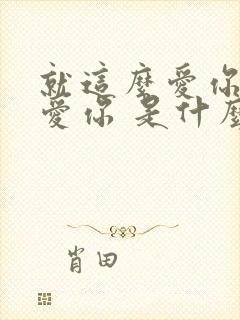 就這麼愛你
愛你 是什麼
肖田